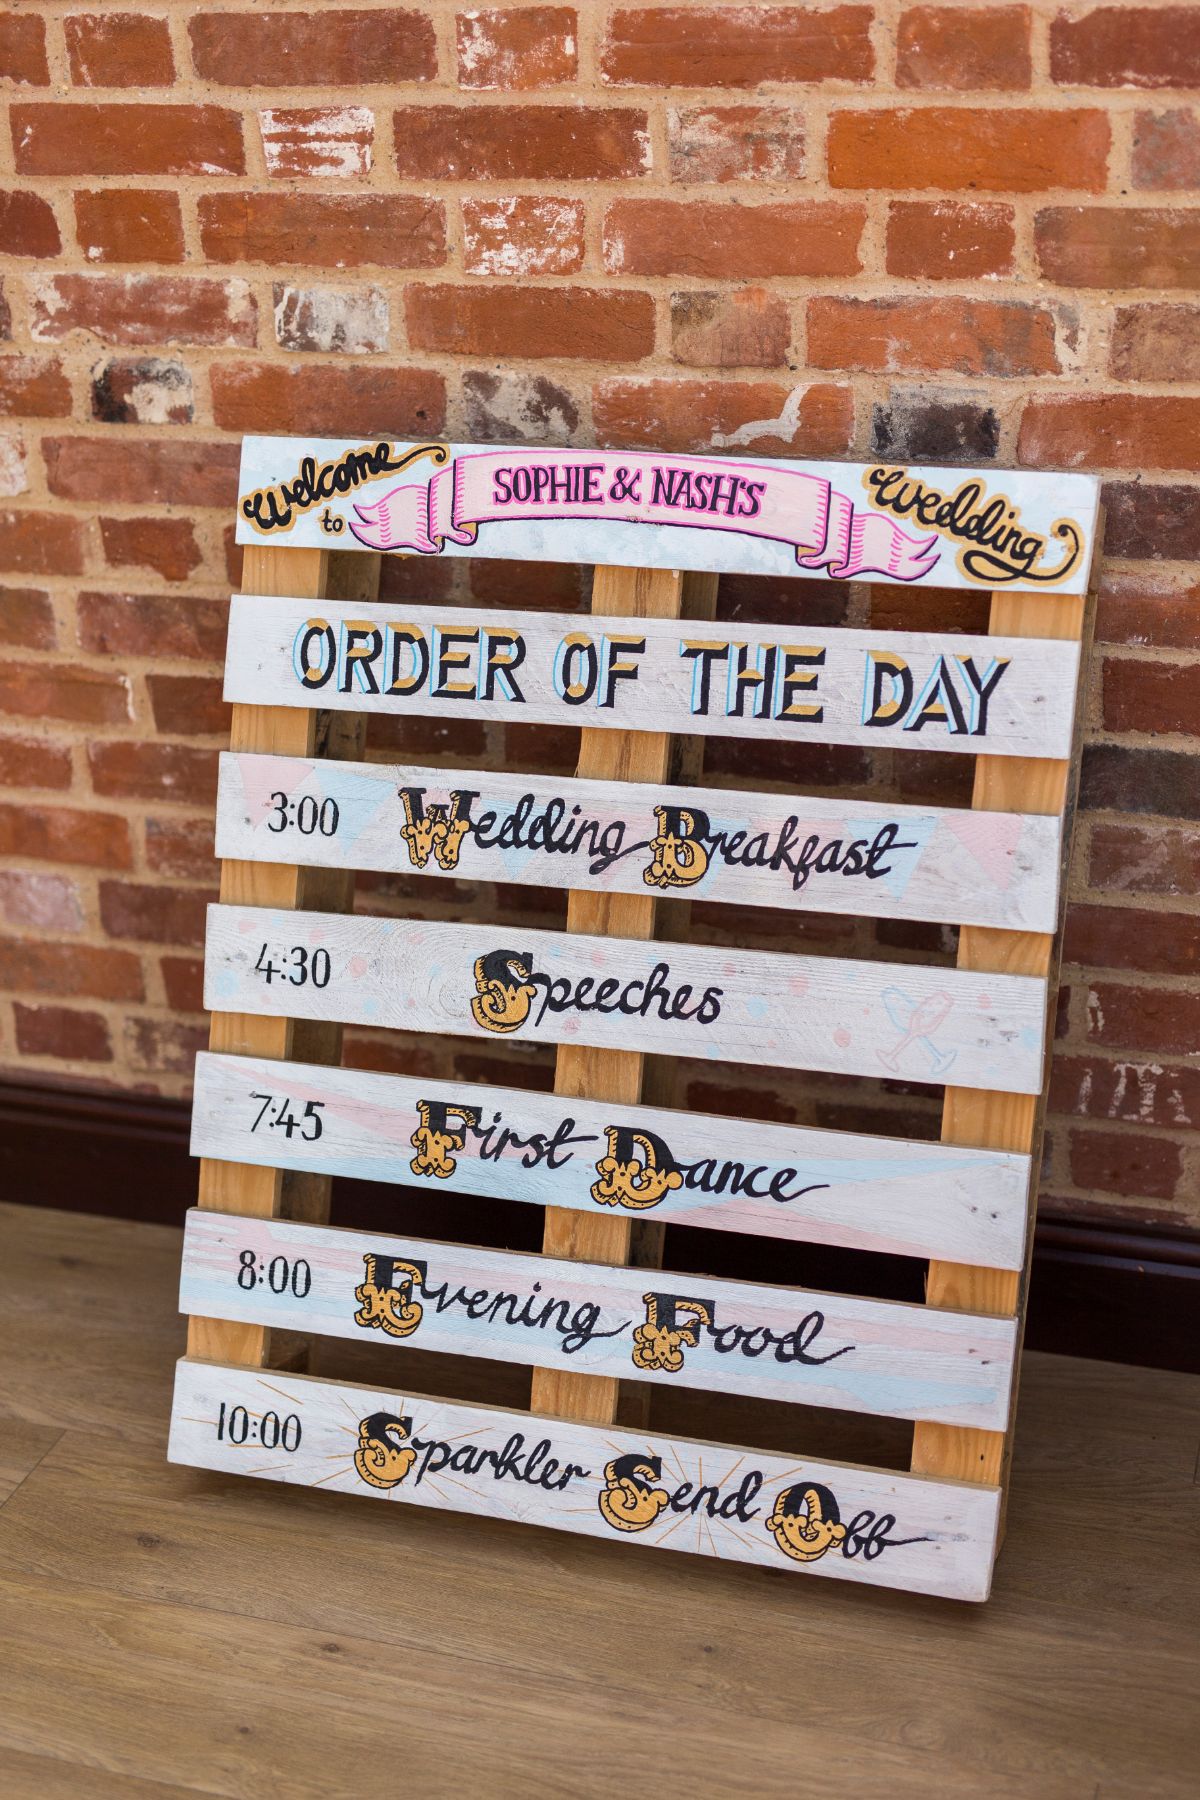 Welcome to SOPHIE & NASH'S Wedding
ORDER OF THE DAY
3:00 Wedding Breakfast
4:30 Speeches
7:45 First Dance
8:00 Evening Food
10:00 Sparkler Send Off